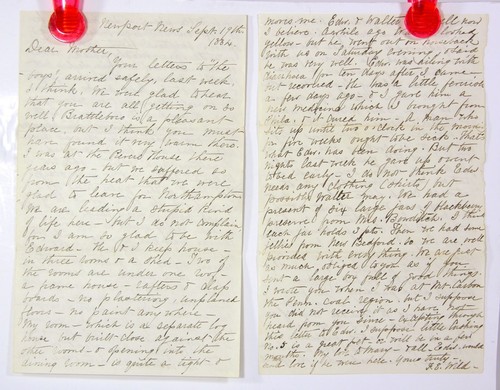 Newport News Sept. 19th
1864.
Dear Mother,
Your letters to the
boys, arrived safely, last week,
I think. We were glad to hear
that you are all getting on so
well. Brattleboro is a pleasant
place, but I think you must
have found it very warm there.
I was at the House there
years ago, but we suffered so
from the heat that we were
glad to leave for Northampton.
We are leading a stupid kind
of life here - but I do not complain
for I am so glad to be with
Edward - He & I keep house
in three rooms & a shed - Two of
the rooms are under one roof -
a frame house - rafters & clap
boards - no plastering, unplaned
floors - no paint any where -
My room - which is a separate log
house but built close against the
other rooms & opening into the
dining room - is quite a tight &
more, me. Edw. & Walter well now
I believe. Awhile ago looked
yellow - but he went out on horseback
with us on Saturday evening, & said
he was very well. Edw. was ailing with
diarrhoea for ten days after I came -
but recovered. He was a little feverish
a few days ago - & I gave him a
new medicine which I brought from
Phila. & it cured him - A man who
sits up until two o'clock in the morn.
for five weeks ought to be sick. That's
what Edw. has been doing. But two
nights last week he gave up & went
to bed early - I do not think Edw.
needs any clothing (shirts) but
possibly Walter may. We had a
present of six large jars of blackberry
preserve from Mrs. Bowditch. I think
each jar holds 3 pts. Then we had some
jellies from New Bedford. So we are well
provided with everything. We are just
as much obliged to you as if you
sent a large box full of good things.
I wrote you when I was at Mt. Carbon
the Penn. coal region. but I suppose
you did not receive it as I have not
heard from you since - excepting through
this letter to Edw. I suppose little
No. 5 is a great pet, & will be in six
months. My love to Mary - all. Edw. would
send love if he were here. Yours truly -
F.E. Wild -